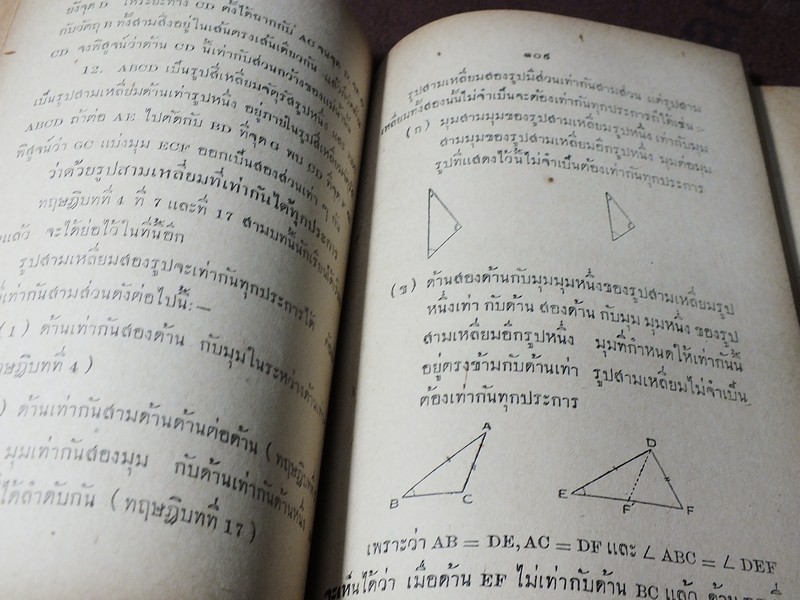 กับวัตถุ B ทั้งสามสิ่งอยู่ในเส้นตรงเส้นเดียวกัน
CD จงพิสูจน์ว่าด้าน CD นี้เท่ากับส่วนกว้างของแม่น้ำ
12. ABCD เป็นรูปสี่เหลี่ยมจัตุรัสรูปหนึ่ง
เป็นรูปสามเหลี่ยมด้านเท่ารูปหนึ่ง อยู่ภายในรูปสี่เหลี่ยมจัตุรัส
ABCD ถ้าต่อ AE ไปตัดกับ BD ที่จุด G
พิสูจน์ว่า GC แบ่งมุม ECF ออกเป็นสองส่วนเท่า ๆ กัน
ว่าด้วยรูปสามเหลี่ยมที่เท่ากันได้ทุกประการ
ทฤษฎีบทที่ 4 ที่ 7 และที่ 17 สามบทนี้นักเรียนได้
แล้ว จะได้ย่อไว้ในที่นี้อีก
รูปสามเหลี่ยมสองรูปจะเท่ากันทุกประการได้
เท่ากันสามส่วนดังต่อไปนี้:—
(1) ด้านเท่ากันสองด้าน กับมุมในระหว่างด้าน
ทฤษฎีบทที่ 4)
) ด้านเท่ากันสามด้านด้านต่อด้าน (ทฤษฎีบทที่
มุมเท่ากันสองมุม กับด้านเท่ากันด้านหนึ่ง
ได้ลำดับกัน (ทฤษฎีบทที่ 17)
๑๐๙
รูปสามเหลี่ยมสองรูปมีส่วนเท่ากันสามส่วน แต่รูปสาม
เหลี่ยมทั้งสองนั้นไม่จำเป็นจะต้องเท่ากันทุกประการก็ได้เช่น:—
(ก) มุมสามมุมของรูปสามเหลี่ยมรูปหนึ่ง เท่ากับมุม
สามมุมของรูปสามเหลี่ยมอีกรูปหนึ่ง มุมต่อมุม
รูปที่แสดงไว้นี้ไม่จำเป็นต้องเท่ากันทุกประการ
(ข) ด้านสองด้านกับมุมมุมหนึ่งของรูปสามเหลี่ยมรูป
หนึ่งเท่า กับด้าน สองด้าน กับมุม มุมหนึ่ง ของรูป
สามเหลี่ยมอีกรูปหนึ่ง มุมที่กำหนดให้เท่ากันนี้
อยู่ตรงข้ามกับด้านเท่า รูปสามเหลี่ยมไม่จำเป็น
ต้องเท่ากันทุกประการ
A
B C
D
E F' F
เพราะว่า AB = DE, AC = DF และ ∠ ABC = ∠ DEF
จะเห็นได้ว่า เมื่อด้าน EF ไม่เท่ากับด้าน BC แล้ว